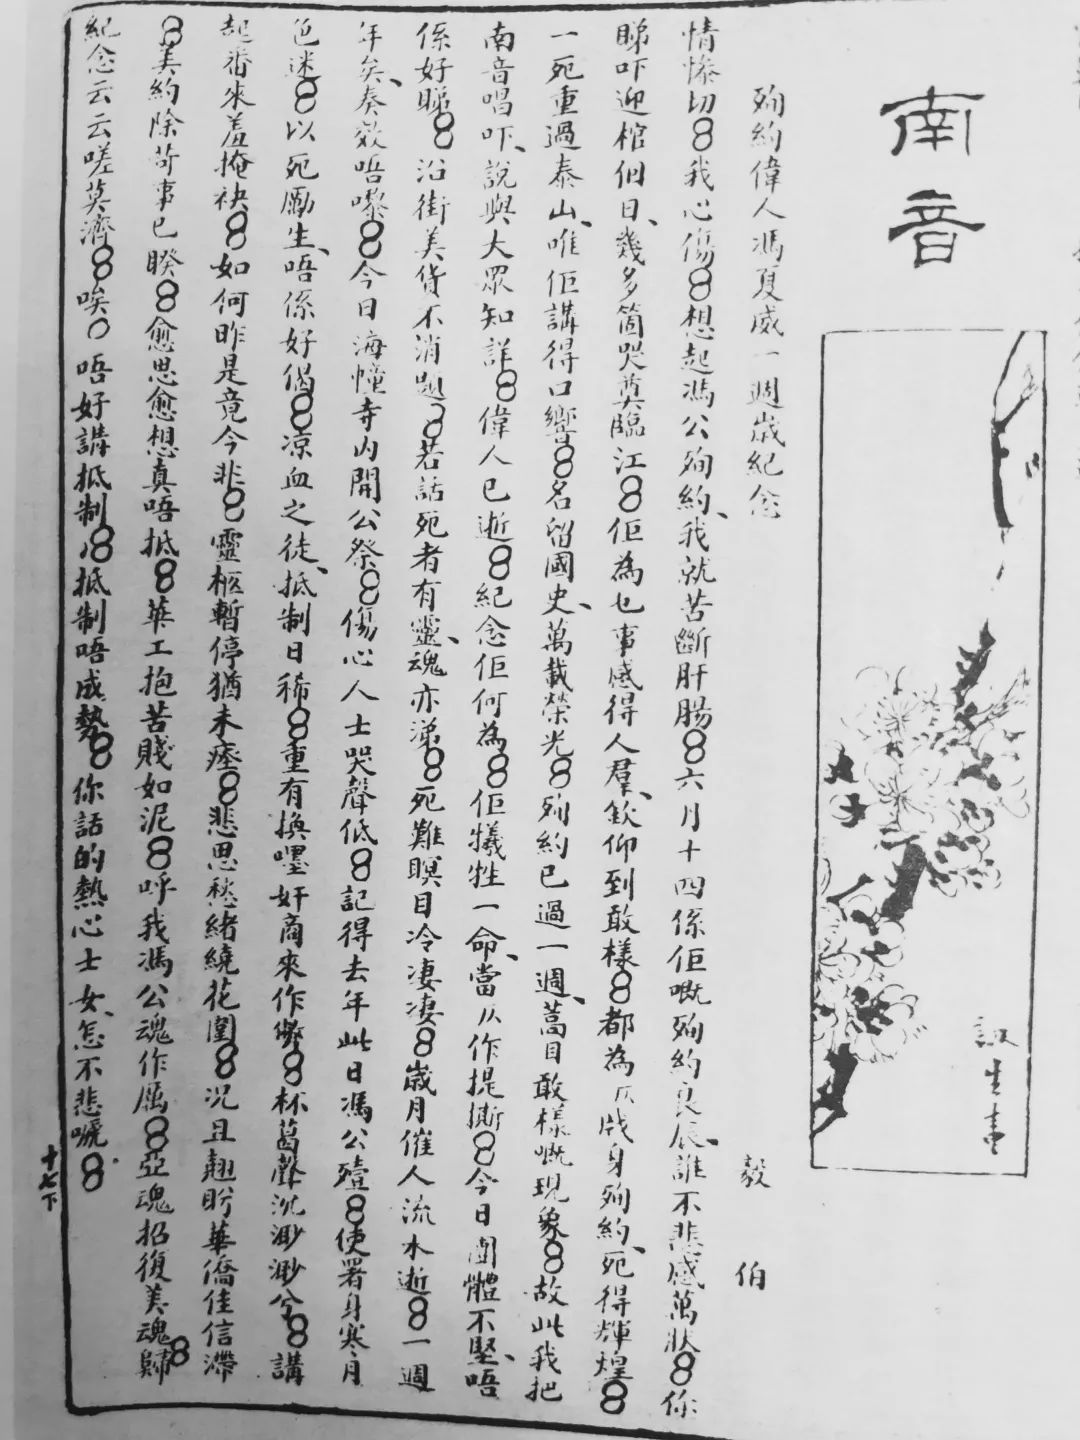 南音
殉約偉人馮夏威一週歲紀念
毅伯
情慘切8我心傷8想起馮公殉約、我就苦斷肝腸8六月十四係佢嘅殉約良辰、誰不悲感萬狀8你
睇吓迎棺個日、幾多箇哭奠臨江8佢為乜事感得人羣、欽仰到敢樣8都為一身殉約、死得輝煌8
一死重過泰山、唯佢講得口響8名留國史、萬載榮光8殉約已過一週、蒿目敢樣嘅現象8故此我把
南音唱吓、說與大眾知詳8偉人已逝8紀念佢何為8佢犧牲一命、當以作提撕8今日團體不堅、唔
係好睇8沿街美貨不消題8若話死者有靈、魂亦涕8死難瞑目冷凄凄8歲月催人流水逝8一週
年矣、奏效唔嚟8今日海幢寺內開公祭8傷心人士哭聲低8記得去年此日馮公殪8使署身寒月
色迷8以死勵生、唔係好偈8凉血之徒、抵制日稀8重有換嘜奸商來作弊8杯葛聲沉渺渺兮8講
起番來羞掩袂8如何昨是竟今非8靈柩暫停猶未瘞8悲思愁緒繞花圍8况且翹盼華僑佳信滯
8美約除苛事已睽8愈思愈想真唔抵8華工抱苦賤如泥8呼我馮公魂作厲8亞魂招復美魂歸8
紀念云云嗟莫濟8唉〇唔好講抵制8抵制唔成勢8你話的熱心士女、怎不悲嘶8
十七下